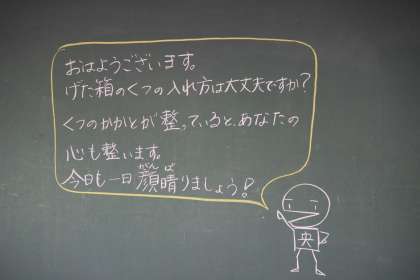 おはようございます。
げた箱のくつの入れ方は大丈夫ですか?
くつのかかとが整っていると、あなたの
心も整います。
今日も一日顔晴りましょう!
がんば
央